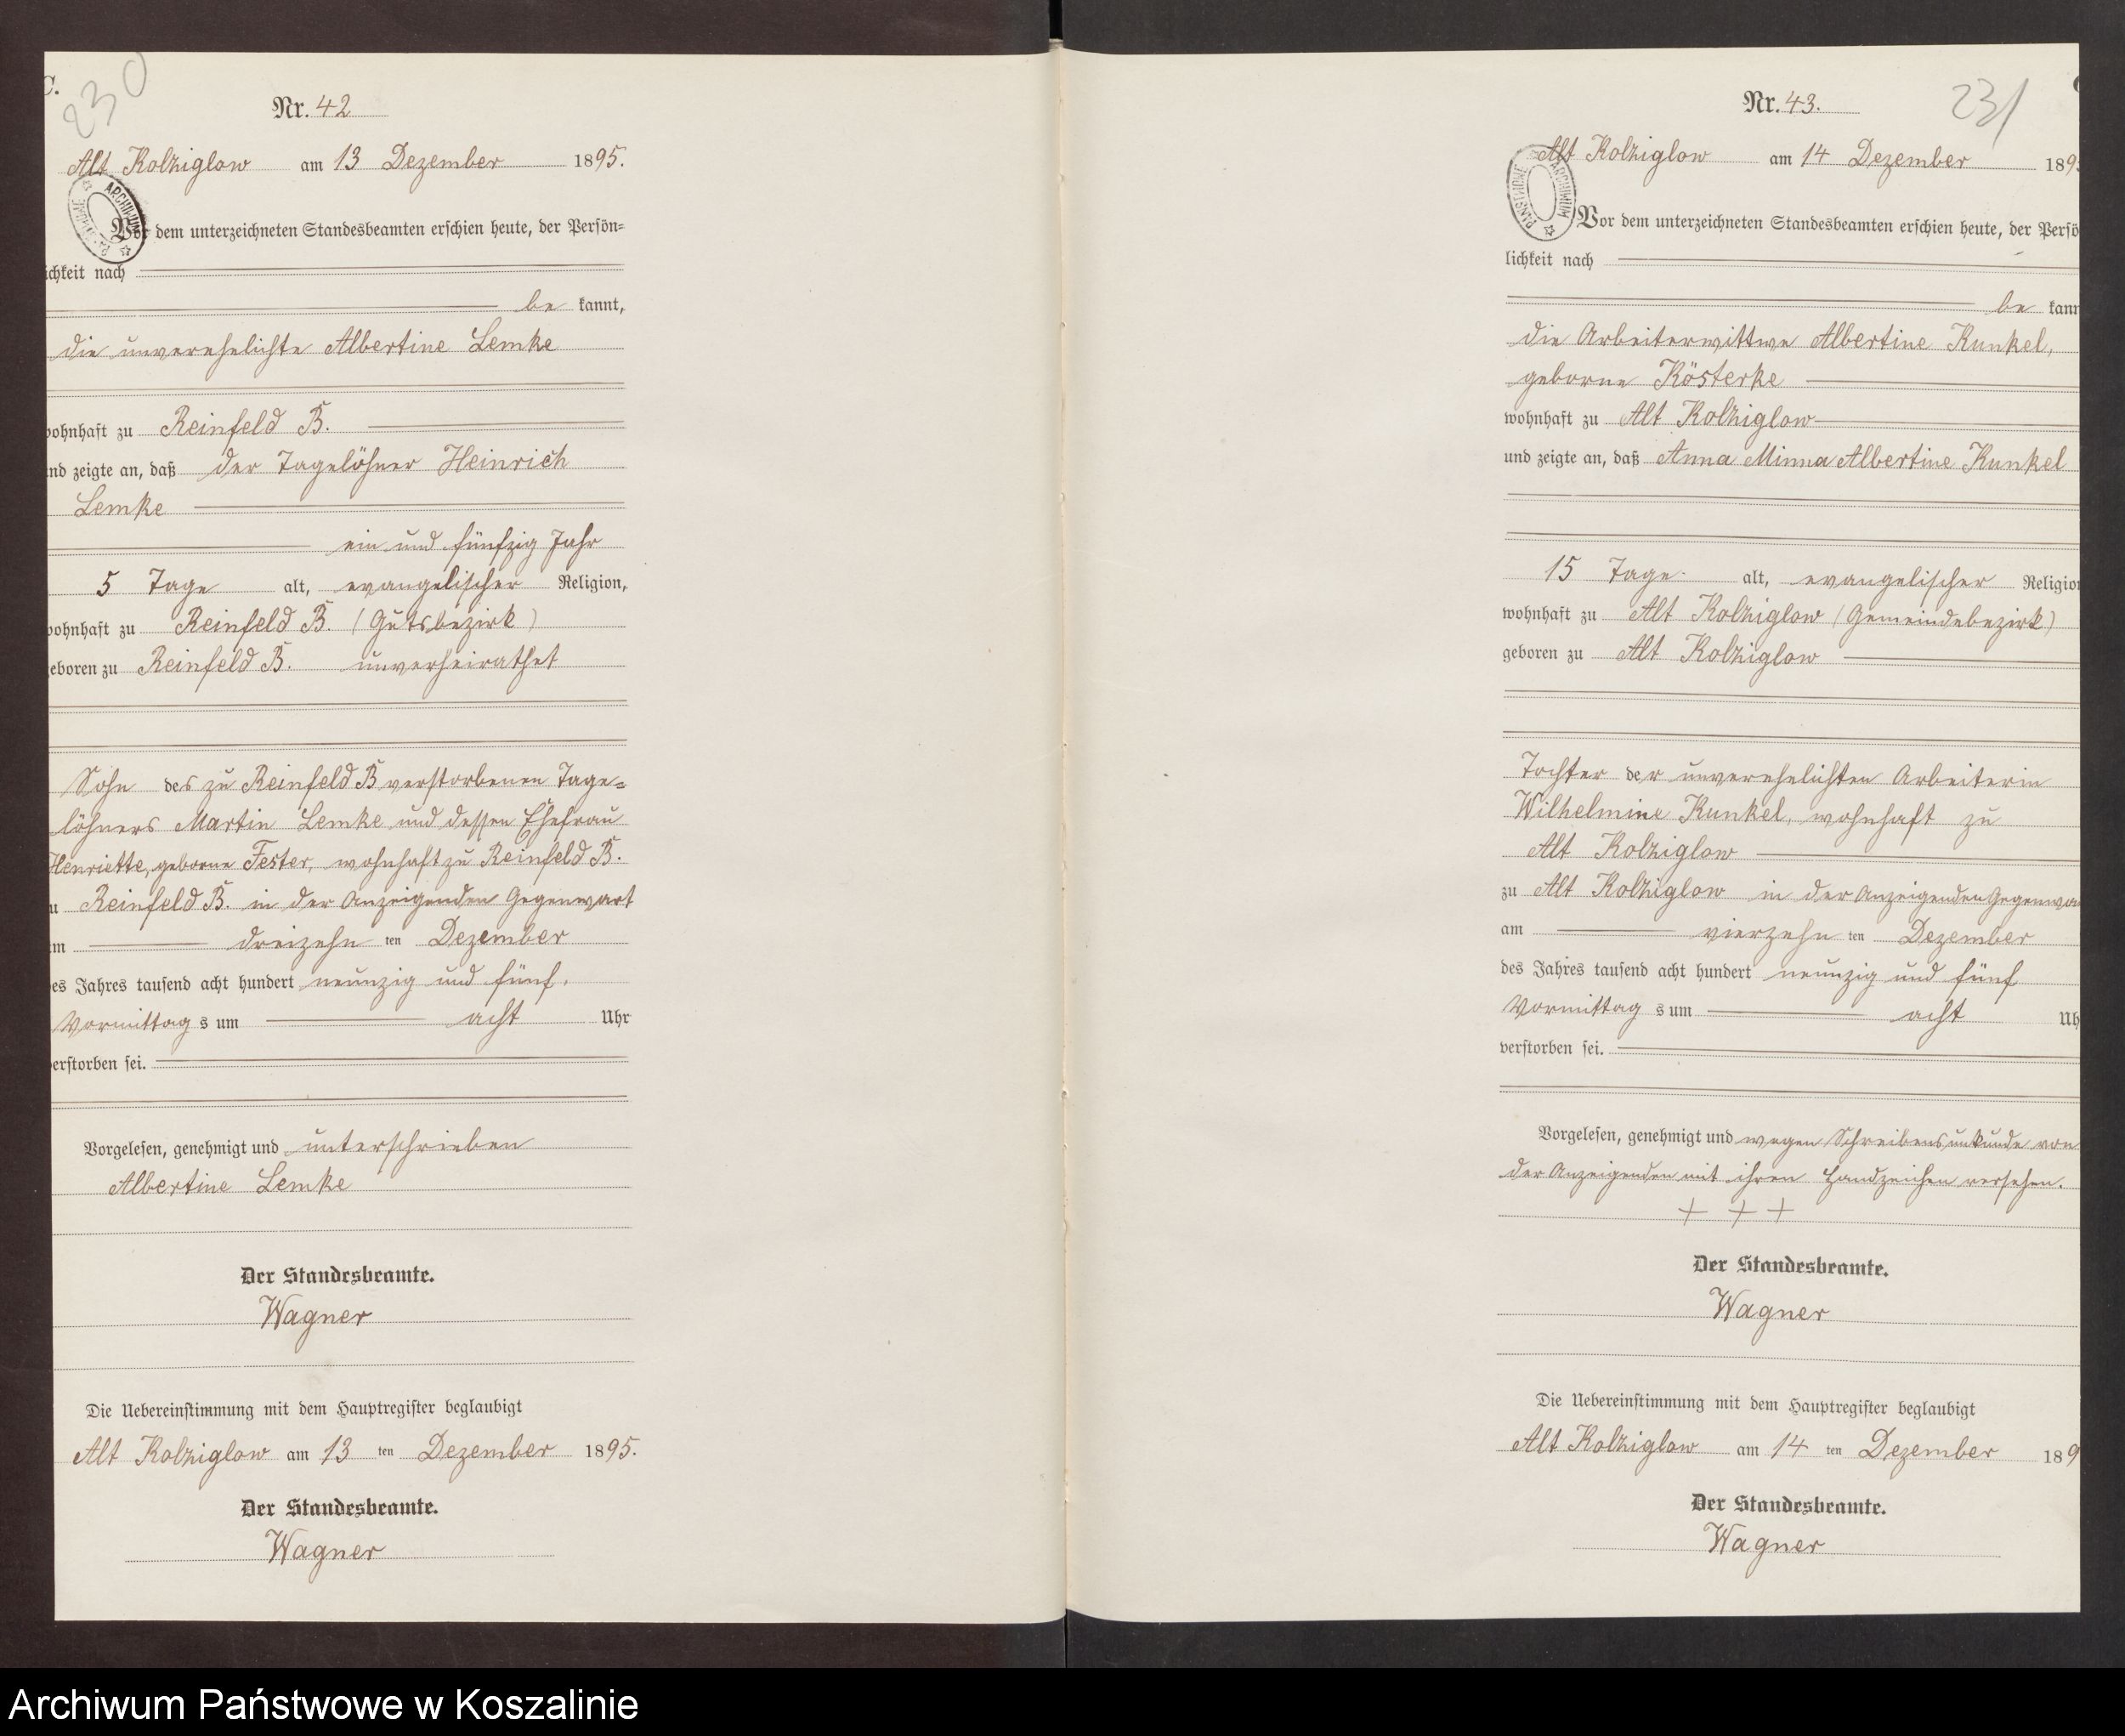 C.
230
Nr. 42
Alt Kolziglow am 13 Dezember 1895.
ARCHIWUM
Vor dem unterzeichneten Standesbeamten erschien heute, der Persön-
ichkeit nach
be kannt,
die unverehelichte Albertine Lemke
wohnhaft zu Reinfeld B.
nd zeigte an, daß der Tagelöhner Heinrich
Lemke
ein und fünfzig Jahr
5 Tage alt, evangelischer Religion,
wohnhaft zu Reinfeld B. (Gutsbezirk)
eboren zu Reinfeld B. unverheirathet
Sohn des zu Reinfeld B verstorbenen Tage-
löhners Martin Lemke und dessen Ehefrau
Henriette, geborne Fester, wohnhaft zu Reinfeld B.
u Reinfeld B. in der Anzeigenden Gegenwart
m dreizehn ten Dezember
es Jahres tausend acht hundert neunzig und fünf,
Vormittag s um acht Uhr
erstorben sei.
Vorgelesen, genehmigt und unterschrieben
Albertine Lemke
Der Standesbeamte.
Wagner
Die Uebereinstimmung mit dem Hauptregister beglaubigt
Alt Kolziglow am 13 ten Dezember 1895.
Der Standesbeamte.
Wagner
231
Nr. 43.
Alt Kolziglow am 14 Dezember 189
PAŃSTWOWE ARCHIWUM
Vor dem unterzeichneten Standesbeamten erschien heute, der Persö
lichkeit nach
be kann
die Arbeiterwittwe Albertine Kunkel,
geborne Kösterke
wohnhaft zu Alt Kolziglow
und zeigte an, daß Anna Minna Albertine Kunkel
15 Tage alt, evangelischer Religio
wohnhaft zu Alt Kolziglow (Gemeindebezirk)
geboren zu Alt Kolziglow
Tochter der unverehelichten Arbeiterin
Wilhelmine Kunkel, wohnhaft zu
Alt Kolziglow
zu Alt Kolziglow in der Anzeigenden Gegenwa
am vierzehn ten Dezember
des Jahres tausend acht hundert neunzig und fünf
Vormittag s um acht Uh
verstorben sei.
Vorgelesen, genehmigt und wegen Schreibensunkunde von
der Anzeigenden mit ihren Handzeichen versehen.
+ + +
Der Standesbeamte.
Wagner
Die Uebereinstimmung mit dem Hauptregister beglaubigt
Alt Kolziglow am 14 ten Dezember 189
Der Standesbeamte.
Wagner
Archiwum Państwowe w Koszalinie